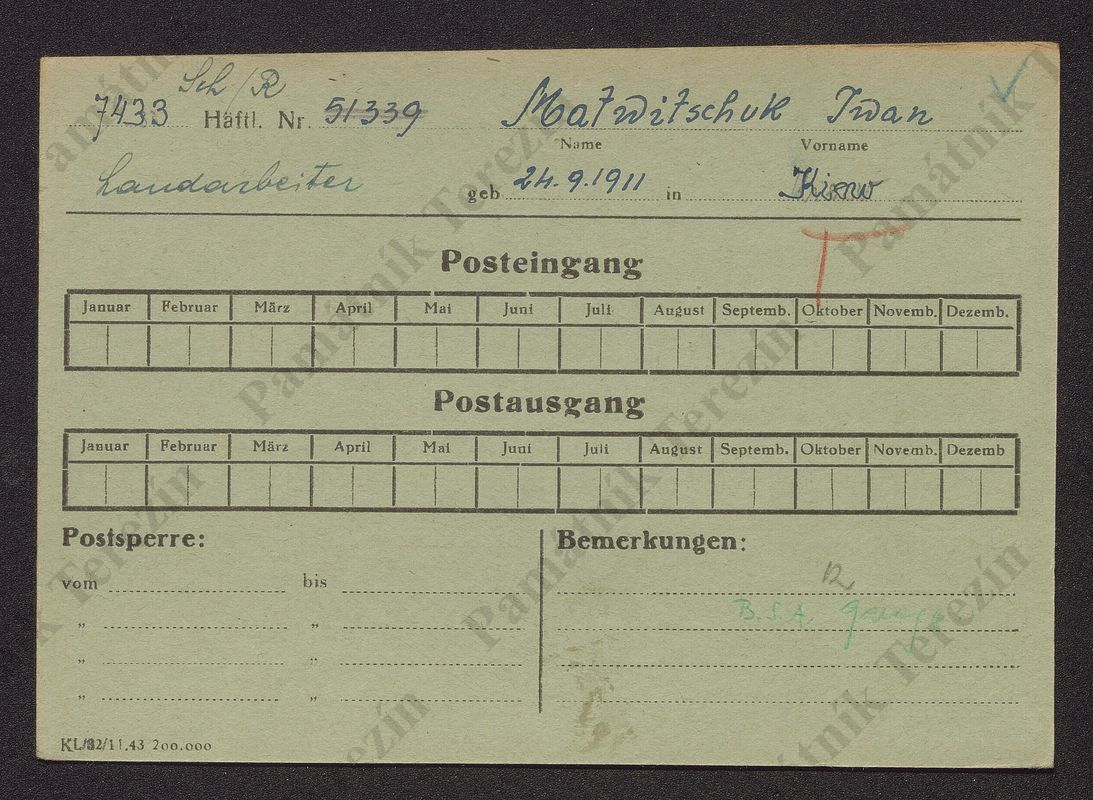 Sch/R
7433 Häftl. Nr. 51339 Matwitschuk Iwan
Name Vorname
Landarbeiter geb 24.9.1911 in Kiew
Posteingang
Januar Februar März April Mai Juni Juli August Septemb. Oktober Novemb. Dezemb.
Postausgang
Januar Februar März April Mai Juni Juli August Septemb. Oktober Novemb. Dezemb
Postsperre: Bemerkungen:
vom bis
B.S.A.
" "
" "
" "
KL/32/11.43 200.000
Památník Terezín